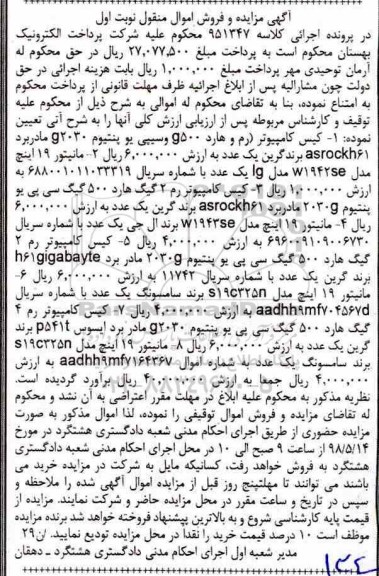 آگهی مزایده و فروش اموال منقول نوبت اول
در پرونده اجرائی کلاسه ۹۵۱۳۴۷ محکوم علیه شرکت پرداخت الکترونیک
بهستان محکوم است به پرداخت مبلغ ۲۷,۰۷۷,۵۰۰ ریال در حق محکوم له
آرمان توحیدی مهر پرداخت مبلغ ۱,۰۰۰,۰۰۰ ریال بابت هزینه اجرائی در حق
دولت چون مشارالیه پس از ابلاغ اجرائیه ظرف مهلت قانونی از پرداخت محکوم
به امتناع نموده، بنا به تقاضای محکوم له اموالی به شرح ذیل از محکوم علیه
توقیف و کارشناس مربوطه پس از ارزیابی ارزش کلی آنها را به شرح آتی تعیین
نموده: ۱- کیس کامپیوتر (رم و هارد g۵۰۰ وسیپی یو پنتیوم g۲۰۳۰ مادربرد
asrockh۶۱ برندگرین یک عدد به ارزش ۶,۰۰۰,۰۰۰ ریال ۲- مانیتور ۱۹ اینچ
مدل w۱۹۴۲se مدل lg یک عدد با شماره سریال ۶۸۸۰۰۱۰۱۱۰۳۳۳۱۹ به
ارزش ۴,۰۰۰,۰۰۰ ریال ۳- کیس کامپیوتر رم ۲ گیگ هارد ۵۰۰ گیگ سی پی یو
پنتیوم g۲۰۳۰ مادربرد asrockh۶۱ برند گرین یک عدد به ارزش ۶,۰۰۰,۰۰۰
ریال ۴- مانیتور ۱۹ اینچ مدل w۱۹۴۳se برند ال جی یک عدد با شماره سریال
۶۹۶۰۰۹۱۰۹۰۰۶۷۳۰ به ارزش ۴,۰۰۰,۰۰۰ ریال ۵- کیس کامپیوتر رم ۲
گیگ هارد ۵۰۰ گیگ سی پی یو پنتیوم g۲۰۳۰ مادر برد h۶۱gigabyte
برند گرین یک عدد با شماره سریال ۱۱۷۴۲ به ارزش ۶,۰۰۰,۰۰۰ ریال ۶-
مانیتور ۱۹ اینچ مدل s۱۹c۳۲۵n برند سامسونگ یک عدد با شماره سریال
aadhh۹mf۷۰۴۵۶۷d به ارزش ۴,۰۰۰,۰۰۰ ریال ۷- کیس کامپیوتر رم ۴
گیگ هارد ۵۰۰ گیگ سی پی یو پنتیوم g۲۰۳۰ مادر برد ایسوس p۵۴۱t برند
گرین یک عدد به ارزش ۶,۰۰۰,۰۰۰ ریال ۸- مانیتور ۱۹ اینچ مدل s۱۹c۳۲۵n
برند سامسونگ یک عدد به شماره اموال aadhh۹mf۷۱۶۴۳۶۷ به ارزش
۴,۰۰۰,۰۰۰ ریال جمعا به ارزش ۴۰,۰۰۰,۰۰۰ ریال برآورد گردیده است.
نظریه مذکور به محکوم علیه ابلاغ در مهلت مقرر اعتراضی به آن نشد و محکوم
له تقاضای مزایده و فروش اموال توقیفی را نموده، لذا اموال مذکور به صورت
مزایده حضوری از طریق اجرای احکام مدنی شعبه دادگستری هشتگرد در مورخ
۹۸/۵/۱۴ از ساعت ۹ صبح الی ۱۰ در محل اجرای احکام مدنی شعبه دادگستری
هشتگرد به فروش خواهد رفت، کسانیکه مایل به شرکت در مزایده خرید می
باشند می توانند تا مهلتپنج روز قبل از مزایده اموال آگهی شده را ملاحظه و
سپس در تاریخ و ساعت مقرر در محل مزایده حاضر و شرکت نمایند. مزایده از
قیمت پایه کارشناسی شروع و به بالاترین پیشنهاد فروخته خواهد شد برنده مزایده
موظف است ۱۰ درصد قیمت خرید را نقداً در محل مزایده تودیع نمایید. /ن۲۹
مدیر شعبه اول اجرای احکام مدنی دادگستری هشتگرد ـ دهقان